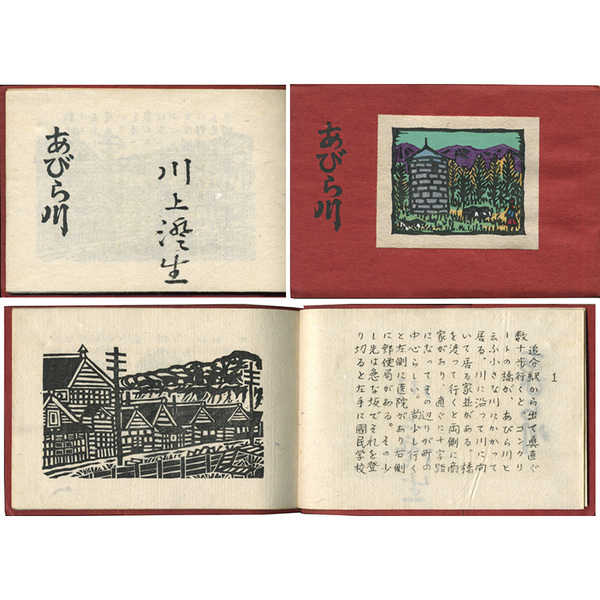 あびら川
川上澄生
あびら川
1
追分駅から出て真直ぐ
数十歩行くと、コンクリ
ートの橋が、あびら川と
云ふ小さな川にかかって
居る。川に沿って川に向
いて居る家並がある。橋
を渡って行くと両側に商
家があり、直ぐに十字路
になって、その辺りが町の
中心らしい。尚少し行く
と左側に医院があり右側
に郵便局がある。その少
し先は急な坂でそれを登
り切ると左手に國民学校